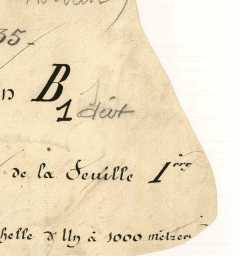 35-
n B
1 dév^t
de la Feuille 1^ère
helle d'Un à 1000 mètres